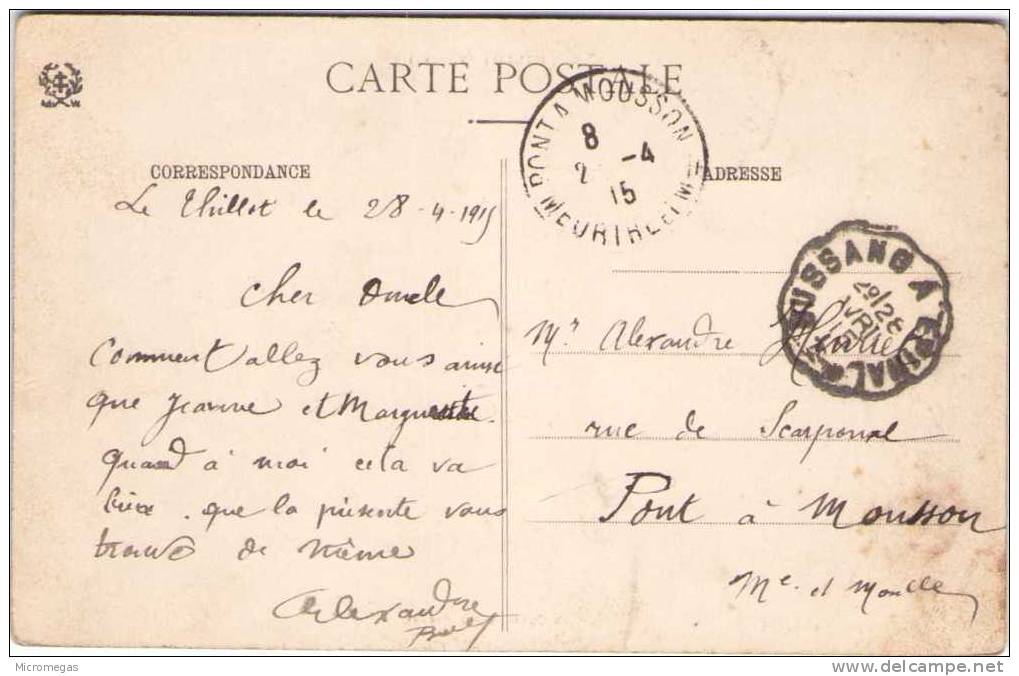 CARTE POSTALE
PONT A MOUSSON
8
2 -4
15
MEURTHE ET M
CORRESPONDANCE
ADRESSE
Le Thillot le 28-4-1915
BUSSANG A EPINAL
Cher Oncle
Mr Alexandre
Comment allez vous ainsi
que Jeanne et Marguerite.
rue de Scarponne
quand à moi cela va
bien. que la présente vous
Pont à Mousson
trouve de même
Me. et Moselle
Alexandre
Micromegas
delcampe.net